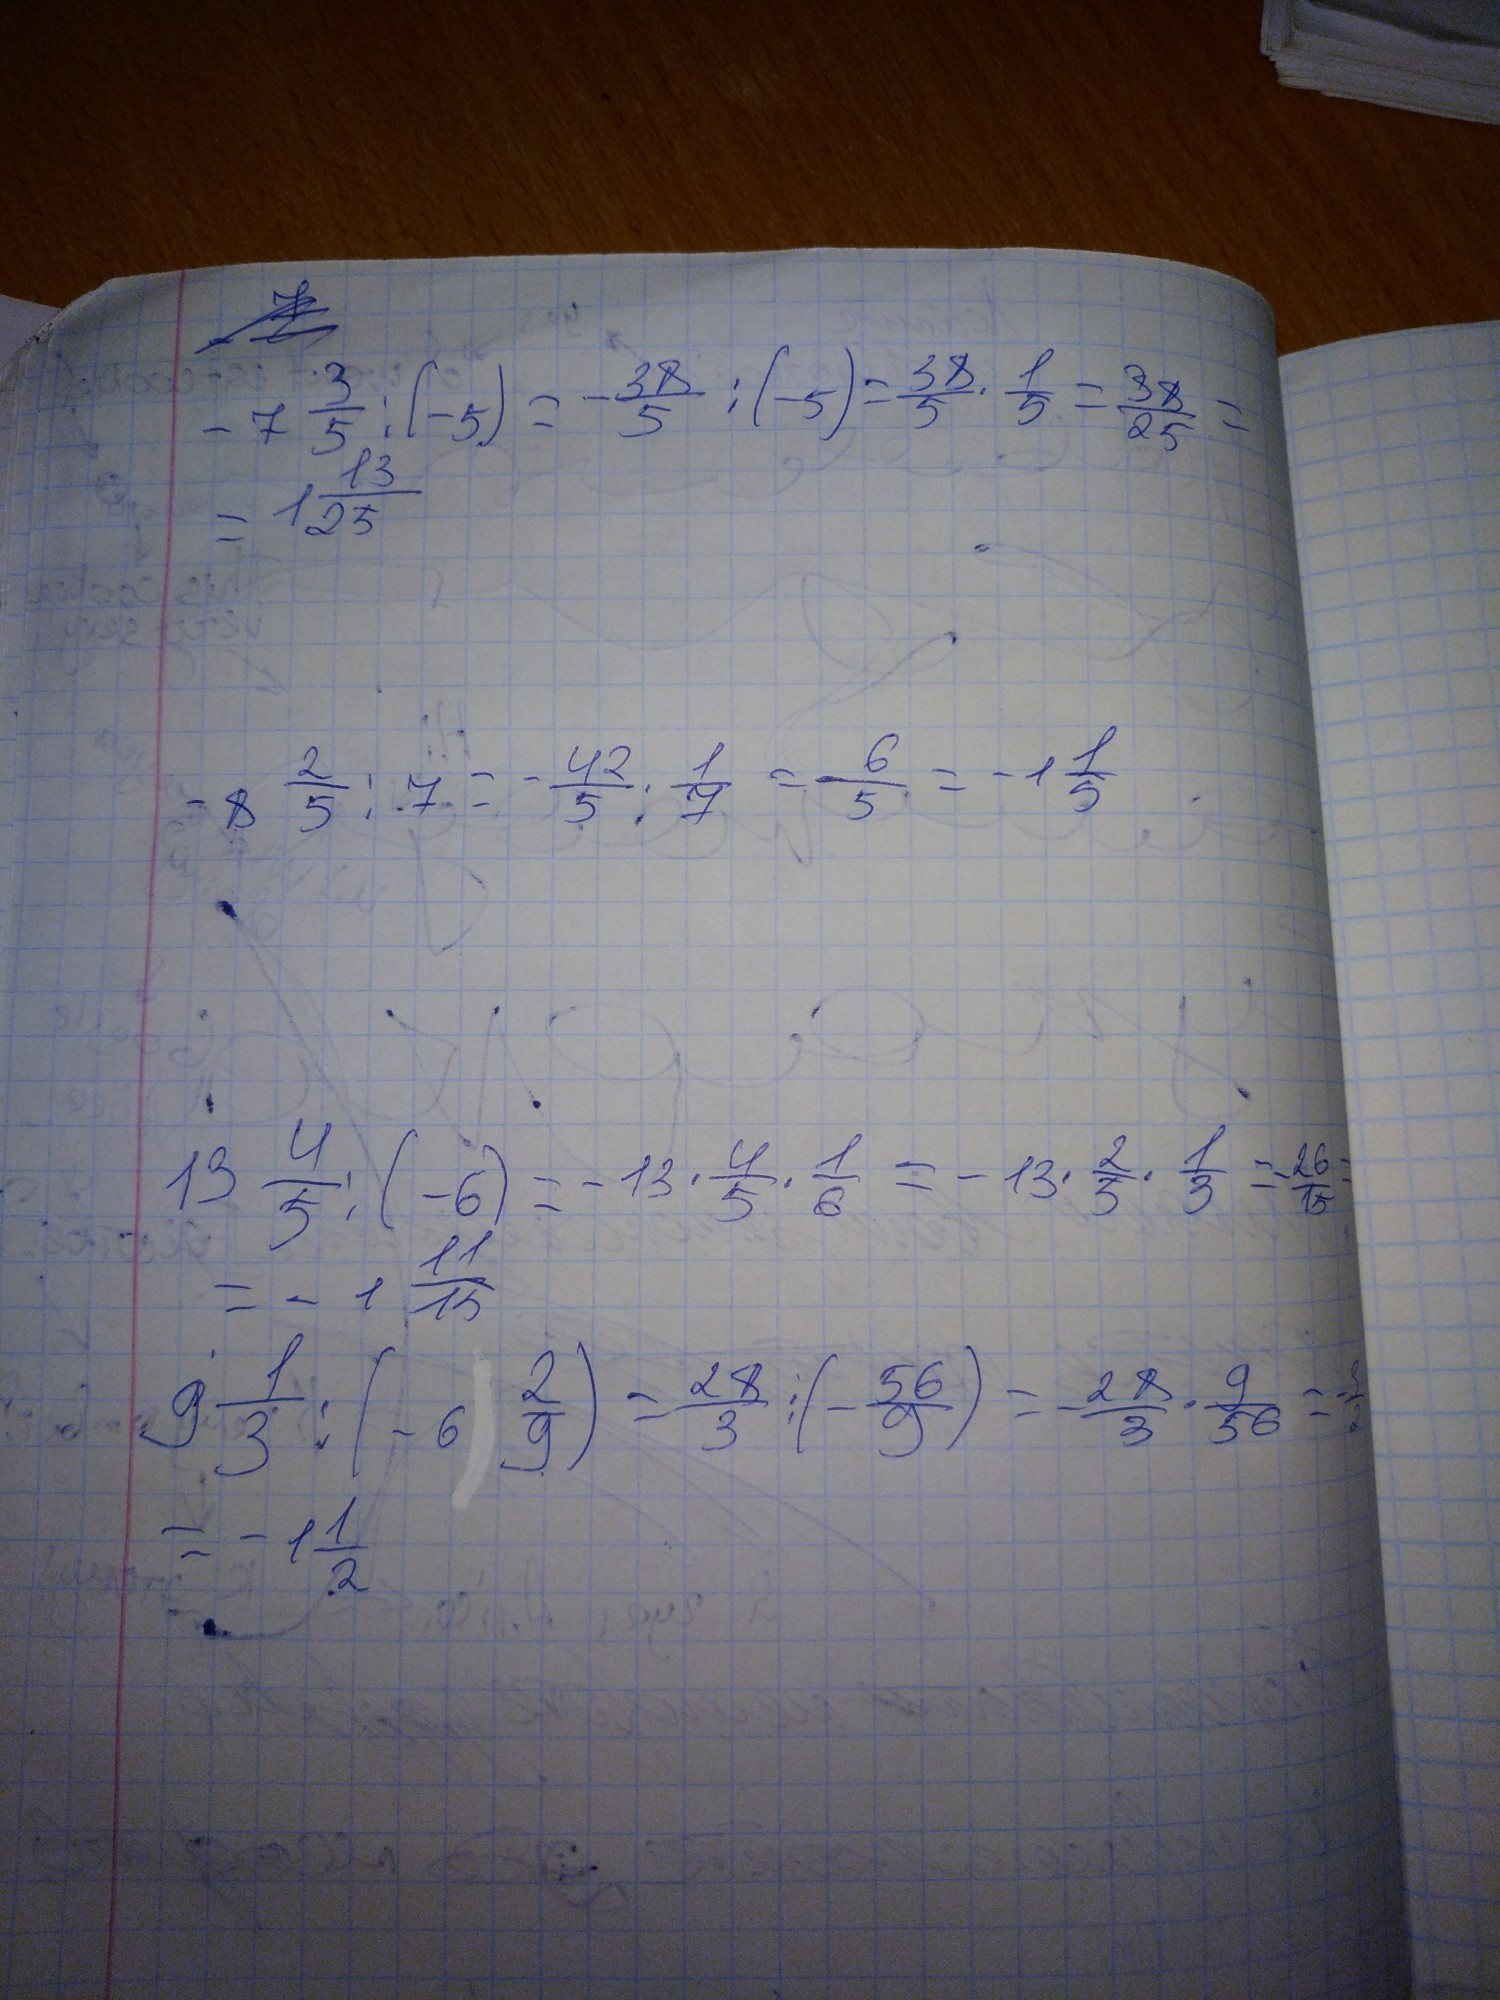 - 7 3/5 : (-5) = - 38/5 : (-5) = 38/5 · 1/5 = 38/25 =
= 1 13/25
- 8 2/5 : 7 = - 42/5 · 1/7 = - 6/5 = - 1 1/5
13 4/5 : (-6) = - 13 · 4/5 · 1/6 = - 13 · 2/5 · 1/3 = - 26/15 =
= - 1 11/15
9 1/3 : (-6 2/9) = 28/3 : (- 56/9) = - 28/3 · 9/56 = - 3/2
= - 1 1/2